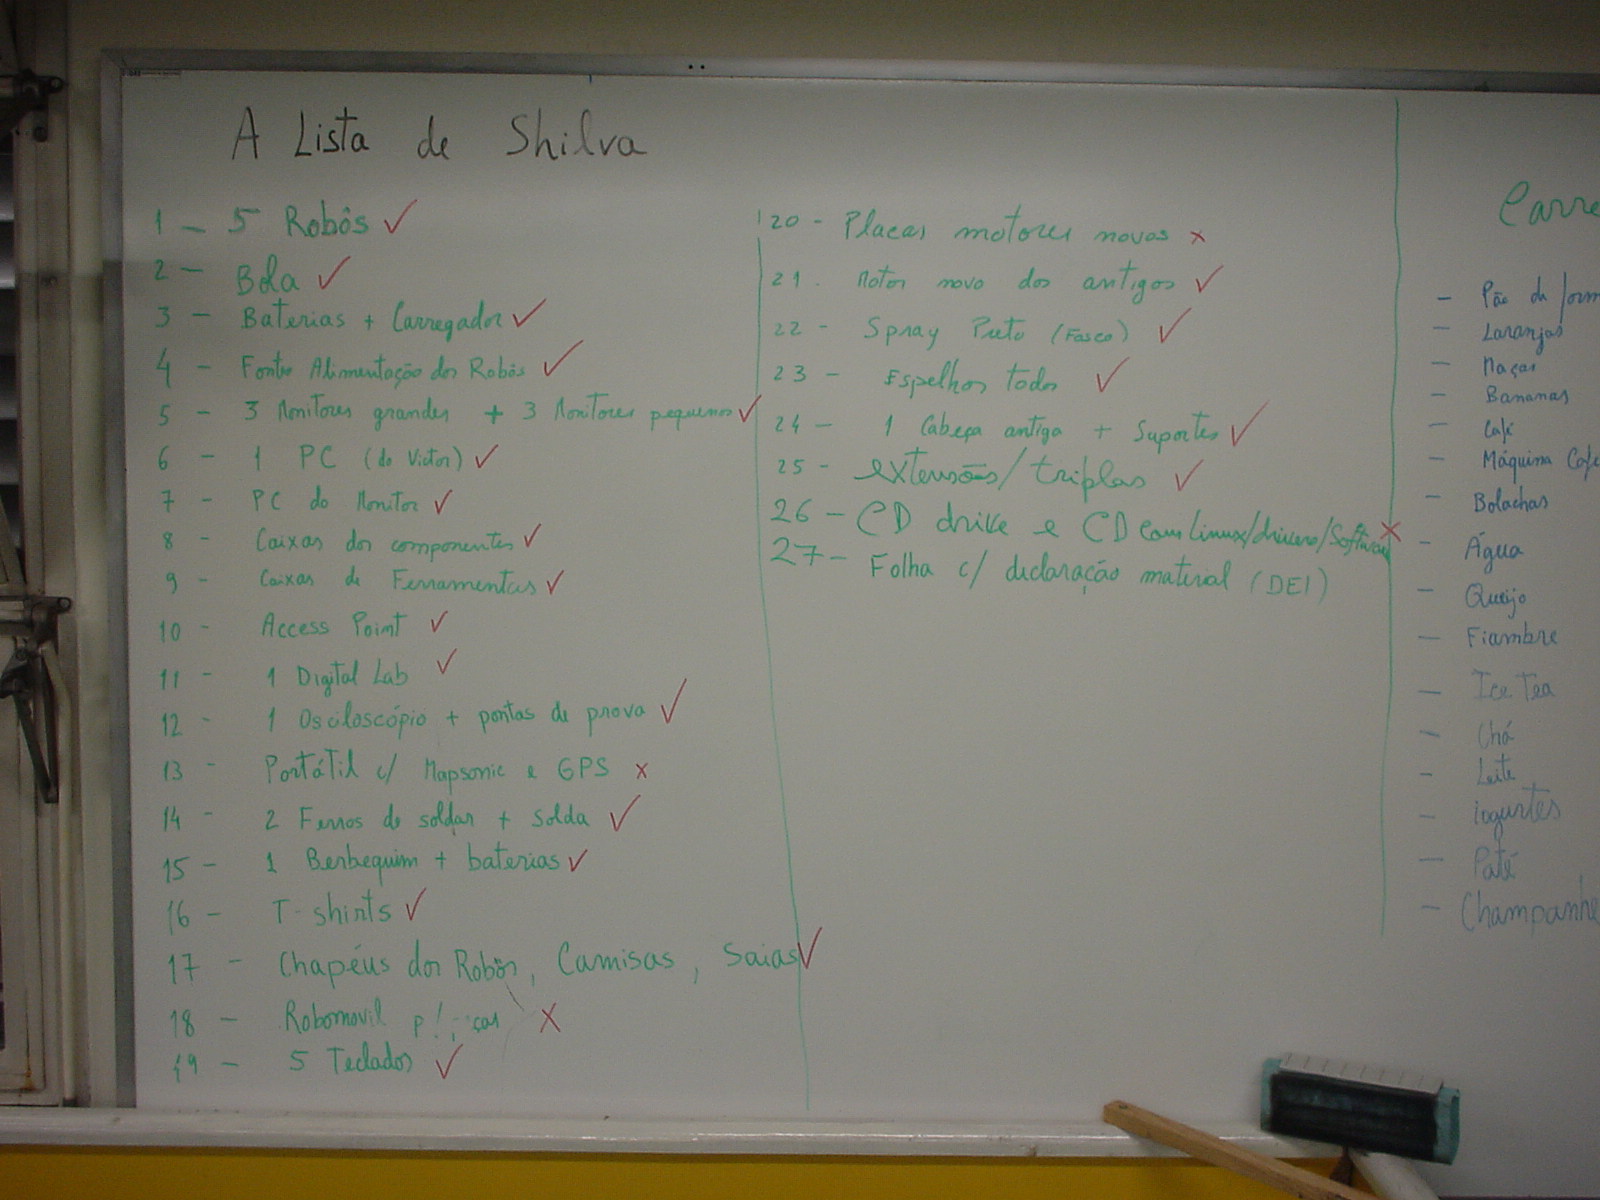 A Lista de Shilva
1 - 5 Robôs ✓
2 - Bola ✓
3 - Baterias + Carregador ✓
4 - Fonte Alimentação dos Robôs ✓
5 - 3 Monitores grandes + 3 Monitores pequenos ✓
6 - 1 PC (do Victor) ✓
7 - PC do Monitor ✓
8 - Caixas dos componentes ✓
9 - Caixas de Ferramentas ✓
10 - Access Point ✓
11 - 1 Digital Lab ✓
12 - 1 Osciloscópio + pontas de prova ✓
13 - Portátil c/ Mapsonic e GPS x
14 - 2 Ferros de soldar + solda ✓
15 - 1 Berbequim + baterias ✓
16 - T-shirts ✓
17 - Chapéus dos Robôs, Camisas, Saias ✓
18 - Robomovil X
19 - 5 Teclados ✓
20 - Placas motores novas x
21. Motor novo dos antigos ✓
22 - Spray Preto (Fosco) ✓
23 - Espelhos todos ✓
24 - 1 Cabeça antiga + Suportes ✓
25 - extensões/triplas ✓
26 - CD drive e CD com Linux/drivers/Software X
27 - Folha c/ declaração material (DEI)
Carre
- Pão de form
- Laranjas
- Maças
- Bananas
- Café
- Máquina Cafe
- Bolachas
- Água
- Queijo
- Fiambre
- Ice Tea
- Chá
- Leite
- iogurtes
- Paté
- Champanhe